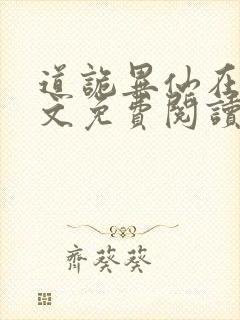 道詭異仙在
文免費閱讀
齊葵葵